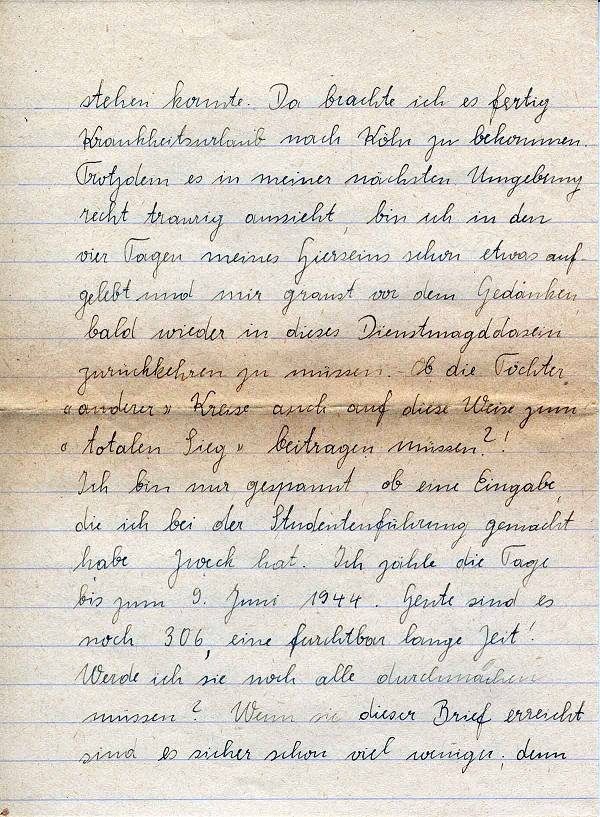 stehen konnte. Da brachte ich es fertig
Krankheitsurlaub nach Köln zu bekommen.
Trotzdem es in meiner nächsten Umgebung
recht traurig aussieht, bin ich in den
vier Tagen meines Hierseins schon etwas auf
gelebt und mir graust vor dem Gedanken,
bald wieder in dieses Dienstmagddasein
zurückkehren zu müssen. - Ob die Töchter
"anderer" Kreise auch auf diese Weise zum
"totalen Sieg" beitragen müssen?!
Ich bin nur gespannt ob eine Eingabe,
die ich bei der Studentenführung gemacht
habe Zweck hat. Ich zähle die Tage
bis zum 9. Juni 1944. Heute sind es
noch 306, eine furchtbar lange Zeit!
Werde ich sie noch alle durchmachen
müssen? Wenn sie dieser Brief erreicht
sind es sicher schon viel weniger, denn